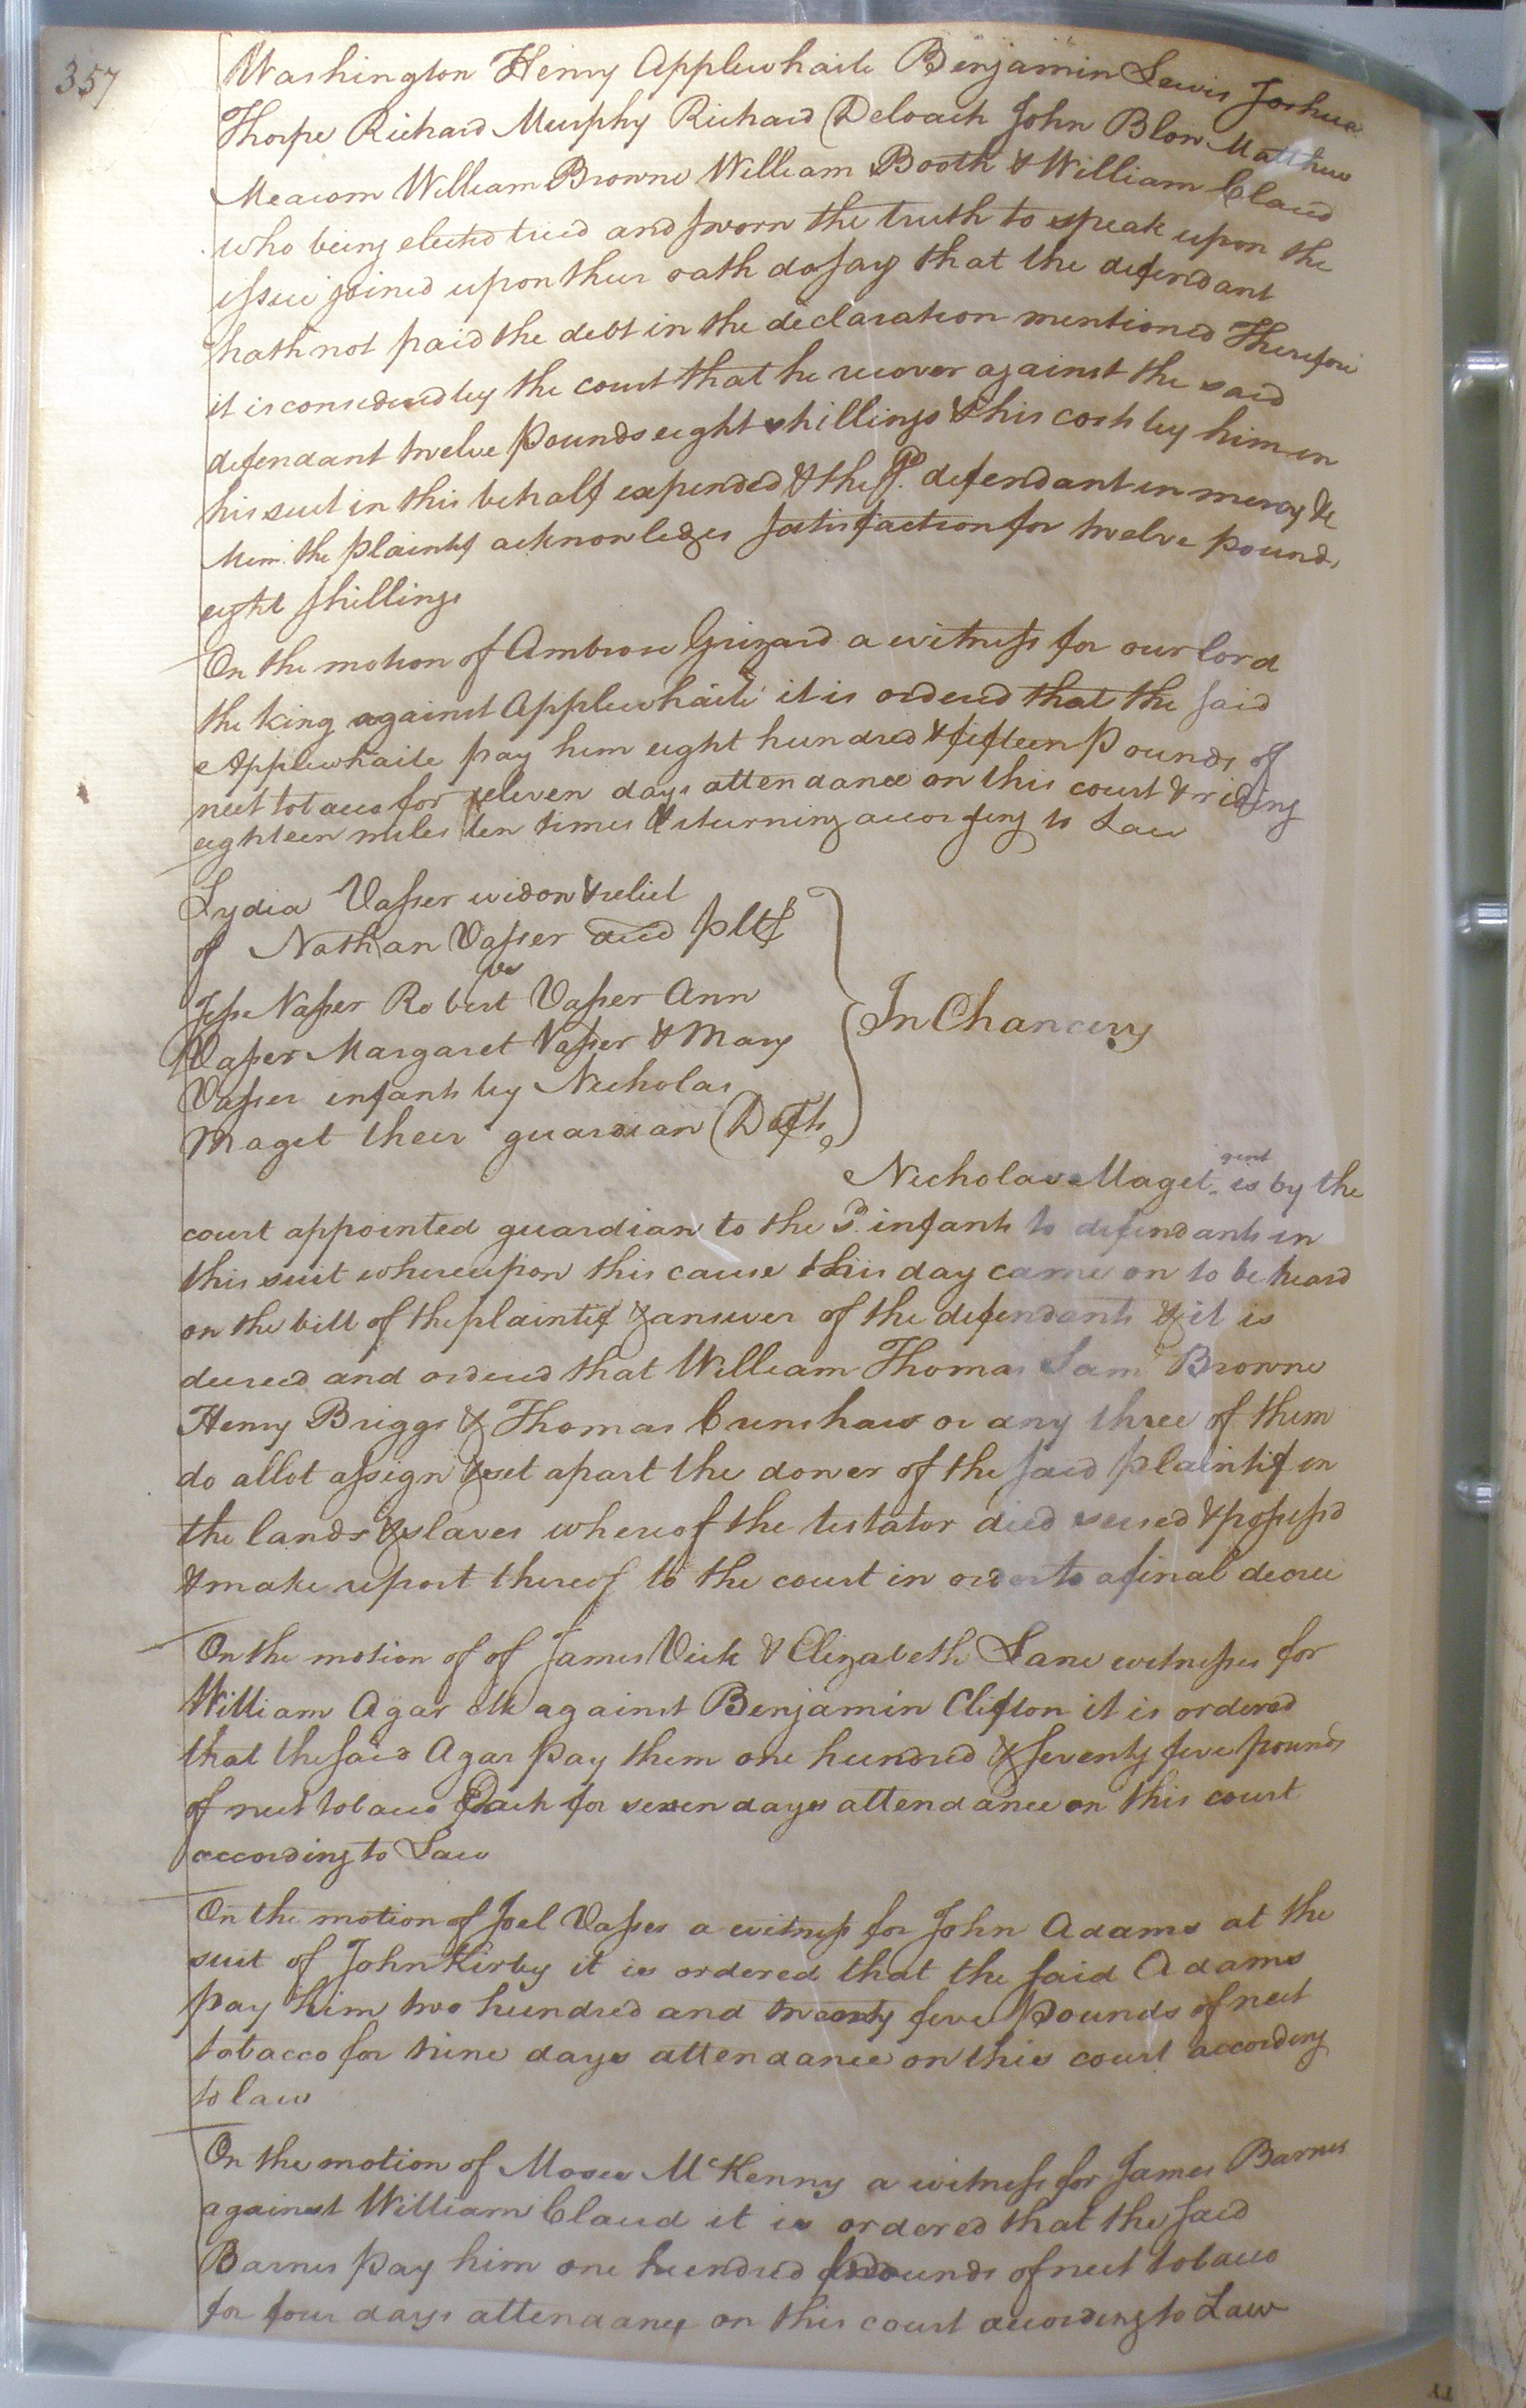 357
Washington Henry Applewhaite Benjamin Lewis Joshua
Thorpe Richard Murphy Richard Deloach John Blow Matthew
Meacom William Browne William Booth & William Claud
who being elected tried and sworn the truth to speak upon the
issue joined upon their oath do say that the defendant
hath not paid the debt in the declaration mentioned Therefore
it is considered by the court that he recover against the said
defendant twelve pounds eight shillings & his costs by him in
his suit in this behalf expended & the sd. defendant in mercy &c
Mem. the plaintif acknowledges satisfaction for twelve pounds
eight shillings
On the motion of Ambrose Grizard a witness for our lord
the king against Applewhaite it is ordered that the said
Applewhaite pay him eight hundred & fifteen Pounds of
neet tobacco for eleven days attendance on this court & riding
eighteen miles ten times & returning according to Law
Lydia Vasser widow & relict
of Nathan Vasser decd pltf
vs
Jesse Vasser Robert Vasser Ann
Vasser Margaret Vasser & Mary
Vasser infants by Nicholas
Maget their guardian Defts
In Chancery
Nicholas Maget gent is by the
court appointed guardian to the sd. infants to defendants in
this suit whereupon this cause this day came on to be heard
on the bill of the plaintif & answer of the defendants & it is
decreed and ordered that William Thomas Sam Browne
Henry Briggs & Thomas Crenshaw or any three of them
do allot assign & set apart the dower of the said plaintif in
the lands & slaves whereof the testator died seised & possess'd
& make report thereof to the court in order to a final decree
On the motion of of James Vick & Elizabeth Lane witnesses for
William Agar against Benjamin Clifton it is ordered
that the said Agar pay them one hundred & seventy five pounds
of neet tobacco Each for seven days attendance on this court
according to Law
On the motion of Joel Vasser a witness for John Adams at the
suit of John Kirby it is ordered that the said Adams
pay him two hundred and twenty five Pounds of neet
tobacco for nine days attendance on this court according
to law
On the motion of Moses McKenny a witness for James Barnes
against William Claud it is ordered that the said
Barnes pay him one hundred Pounds of neet tobacco
for four days attendance on this court according to Law